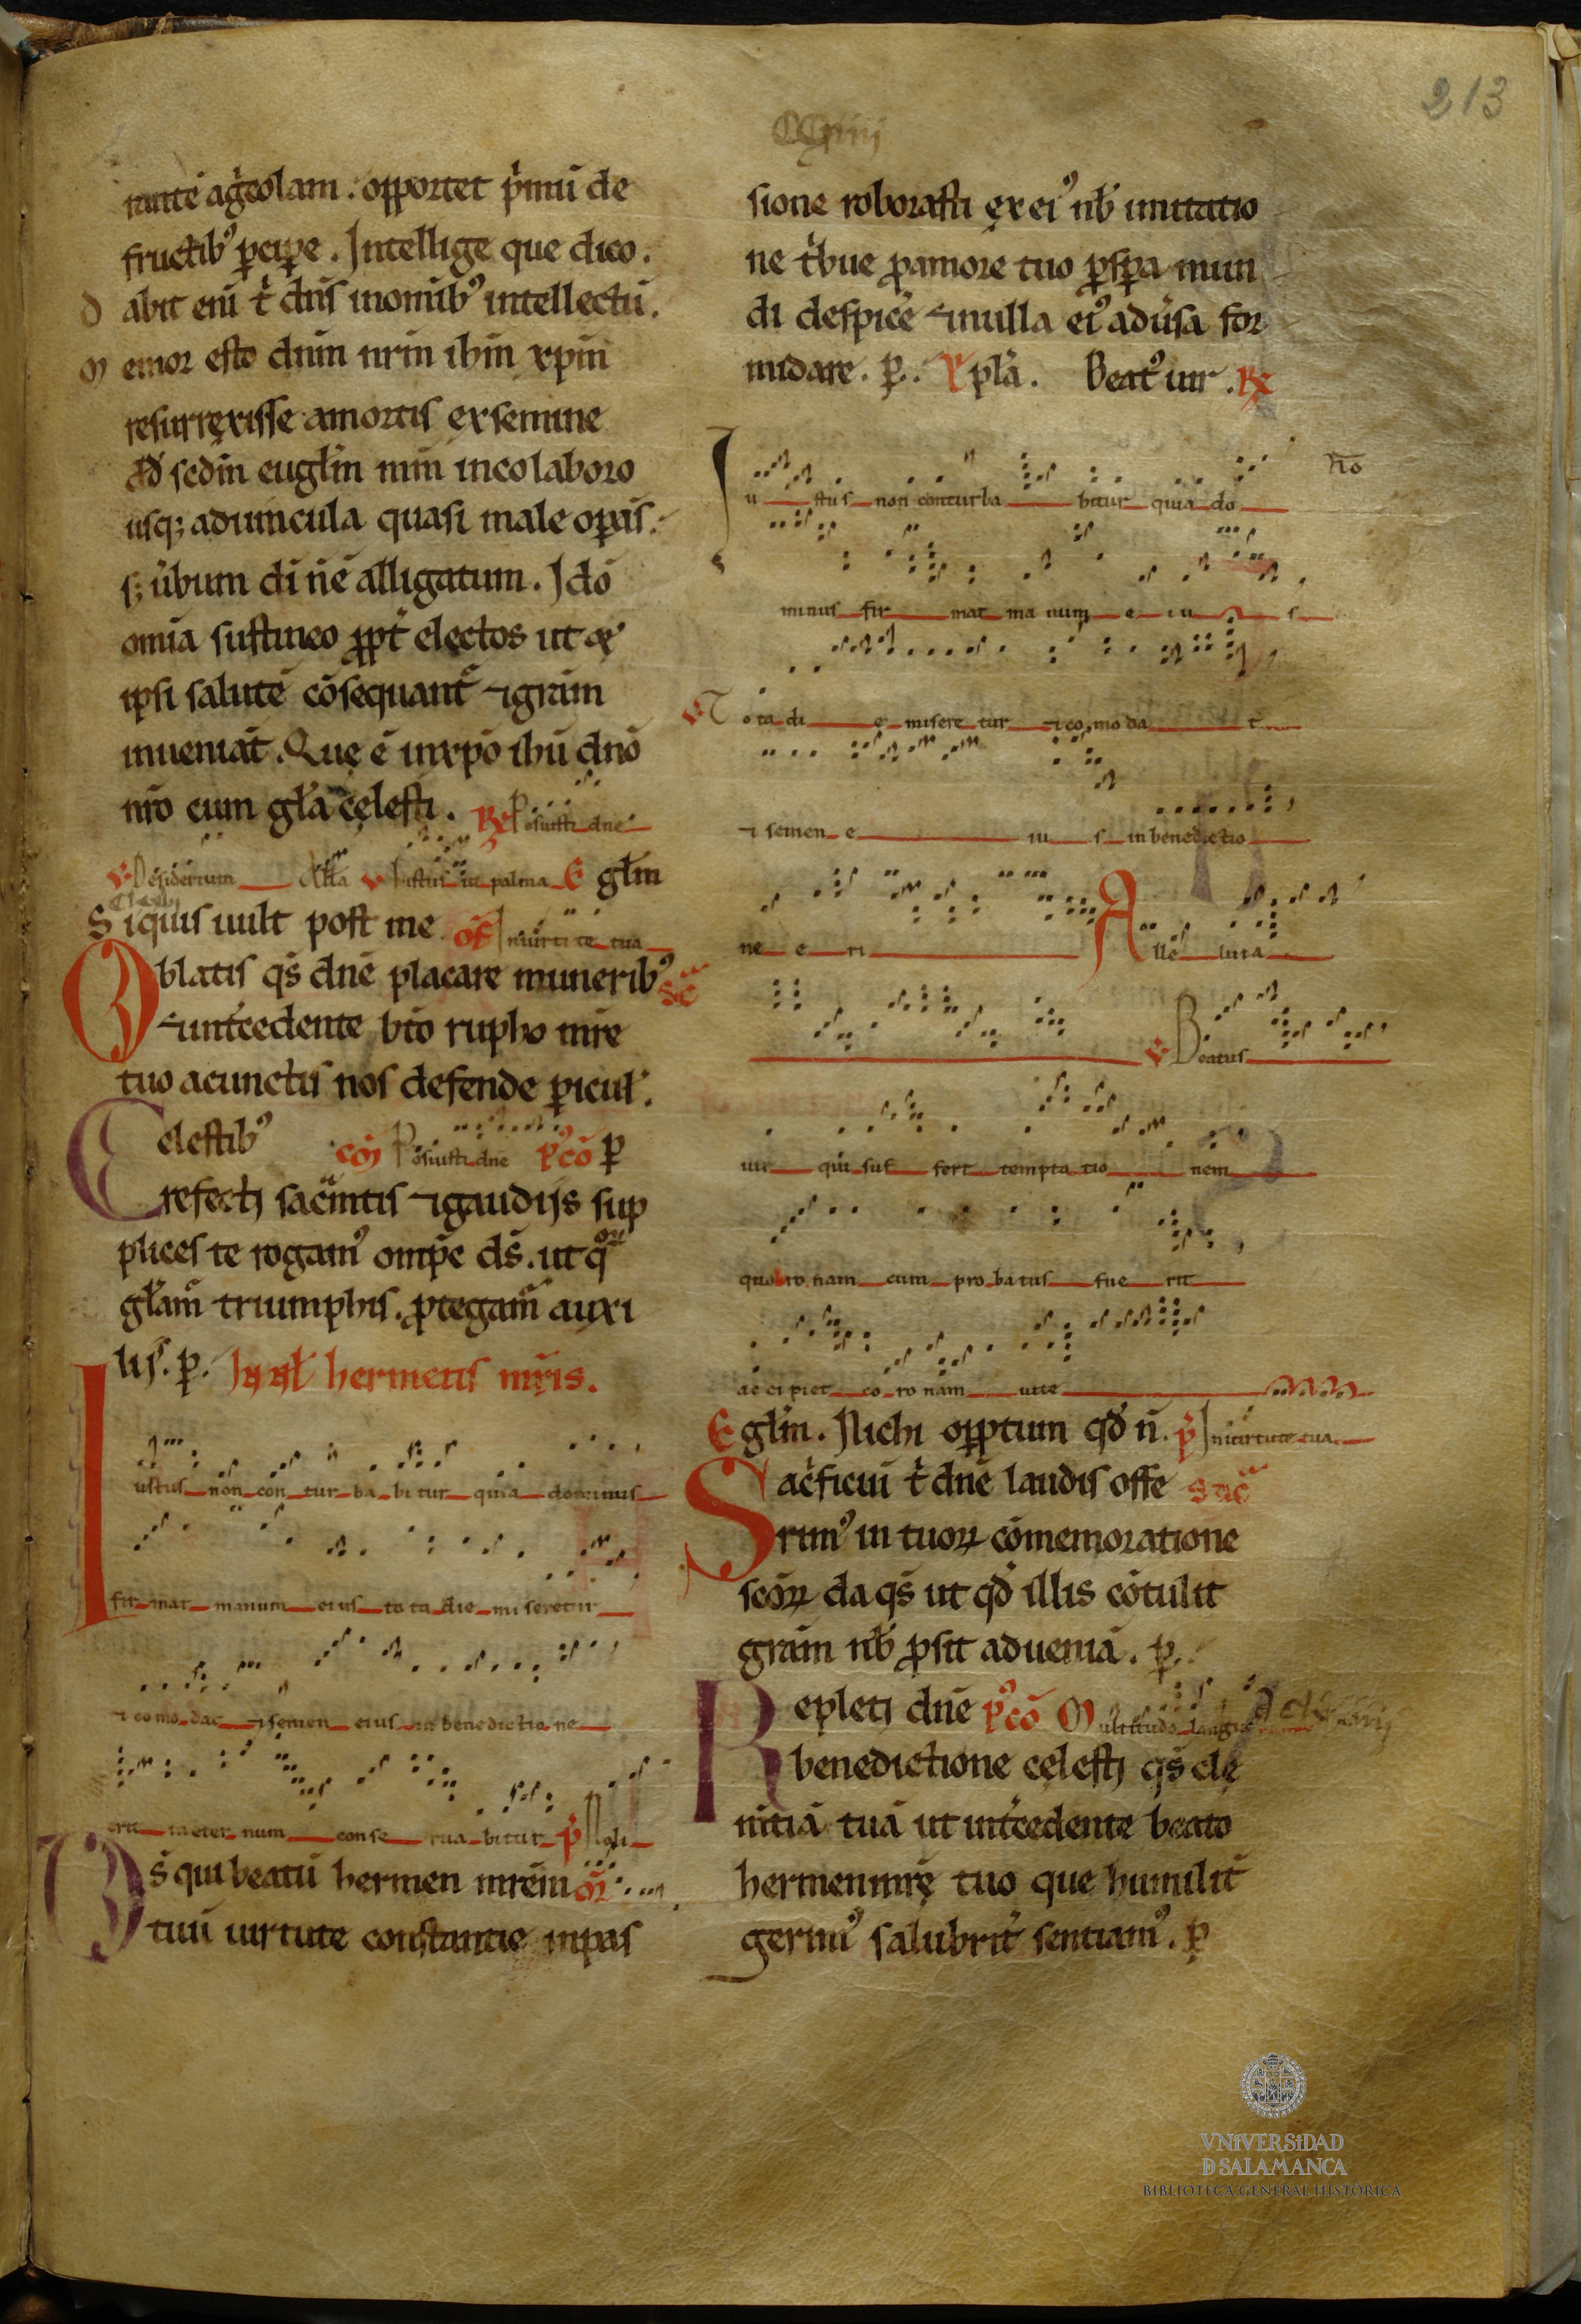 213
rante agͥcolam. opportet pͥmū de
fructibꝰ ꝑcipe. Intellige que dico.
d abit eni tͥ dn̄s inomībꝰ intellectū.
M emor esto dnm̄ nrm̄ ihm̄ xpm̄
resurrexisse amortis exsemine
dd̄ scdm̄ euglm̄ mm̄ ineo laboro
usq; aduincula quasi male oꝑās.
s; ūbum di nē alligatum. Ido
om̄ia sustineo ꝓpt̄ electos ut &
ipsi salutē cōsequant̄ ⁊ gram̄
inueniāt. Que ē inxpo ihu dno
nr̄o cum gl̄a celesti. ℞ Posuisti dne
℣ Desiderium All̄a ℣ Iustus ut palma E gl̄m
S iquis uult post me of̄ Inuirtute tua
Oblatis qs̄ dnē placare muneribꝰ Sēc
⁊ int̄cedente bto rupho mr̄e
tuo acunctis nos defende ꝑicul̄.
Celestibꝰ cōm Posuisti dne Pꝰcō ꝑ
refecti sacͣmtis ⁊ gaudijs sup
plices te rogamꝰ omp̄e ds̄. ut qͦꝝ
gl̄amͬ triumphis. ꝓtegamͬ auxi
lis. ꝑ. In nt̄ hermetis mr̄is.
Iustus non con tur ba bi tur quia dominus
fir mat manum eius to ta die mi seretur
⁊ co mo dat ⁊ semen eius in benedictio ne
erit ineter num conse rua bitur pͥ Noli
Ds̄ qui beatū hermen mr̄em oꝝ
tuū uirtute constantie inpas
sione roborasti exeiꝰ nb̄ imitatio
ne tͥbue ꝓamore tuo ꝓspa mun
di despicē ⁊ nulla eiꝰ adūsa for
midare. ꝑ. Xpl̄a. Beatꝰ uir. ℞
Iu stus non conturba bitur quia do
minus fir mat ma num e iu s
℣ Tota di e misere tur ⁊ co mo da t
⁊ semen e iu s in benedictio
ne e ri Alle luia
℣ Beatus
uir qui suf fert tempta tio nem
quo ro nam cum pro batus fue rit
ac ci piet co ro nam uite
E gl̄m. Nichi oꝑptum qd̄ n̄. pͥ Inuirtute tua
Sacͥficiū tͥ dnē laudis offe Sac̄
rimꝰ in tuoꝝ cōmemoratione
scōꝝ da qs̄ ut qd̄ illis cōtulit
gram̄ nb̄ ꝓsit adueniā. ꝑ.
Repleti dnē Pꝰcō Multitudo langu
benedictione celesti qs̄ cle
mtiā tuā ut int̄cedente beato
hermenmr̄e tuo que humilit̄
germꝰ salubrit̄ sentiamꝰ. ꝑ
VNiVERSiDAD
D SALAMANCA
BIBLIOTECA GENERAL HISTÓRICA